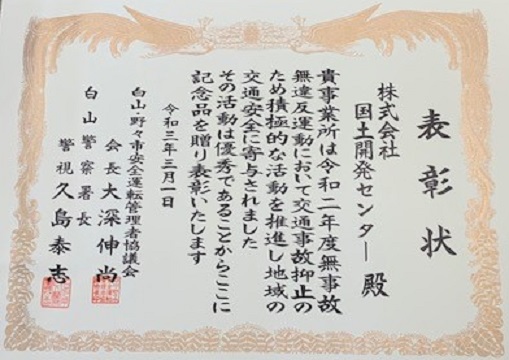 表彰状
株式会社
国土開発センター 殿
貴事業所は令和二年度無事故
無違反運動において交通事故抑止の
ため積極的な活動を推進し地域の
交通安全に寄与されました
その活動は優秀であることからここに
記念品を贈り表彰いたします
令和三年三月一日
白山・野々市安全運転管理者協議会
会長 大深伸尚
白山警察署長
警視 久島泰志